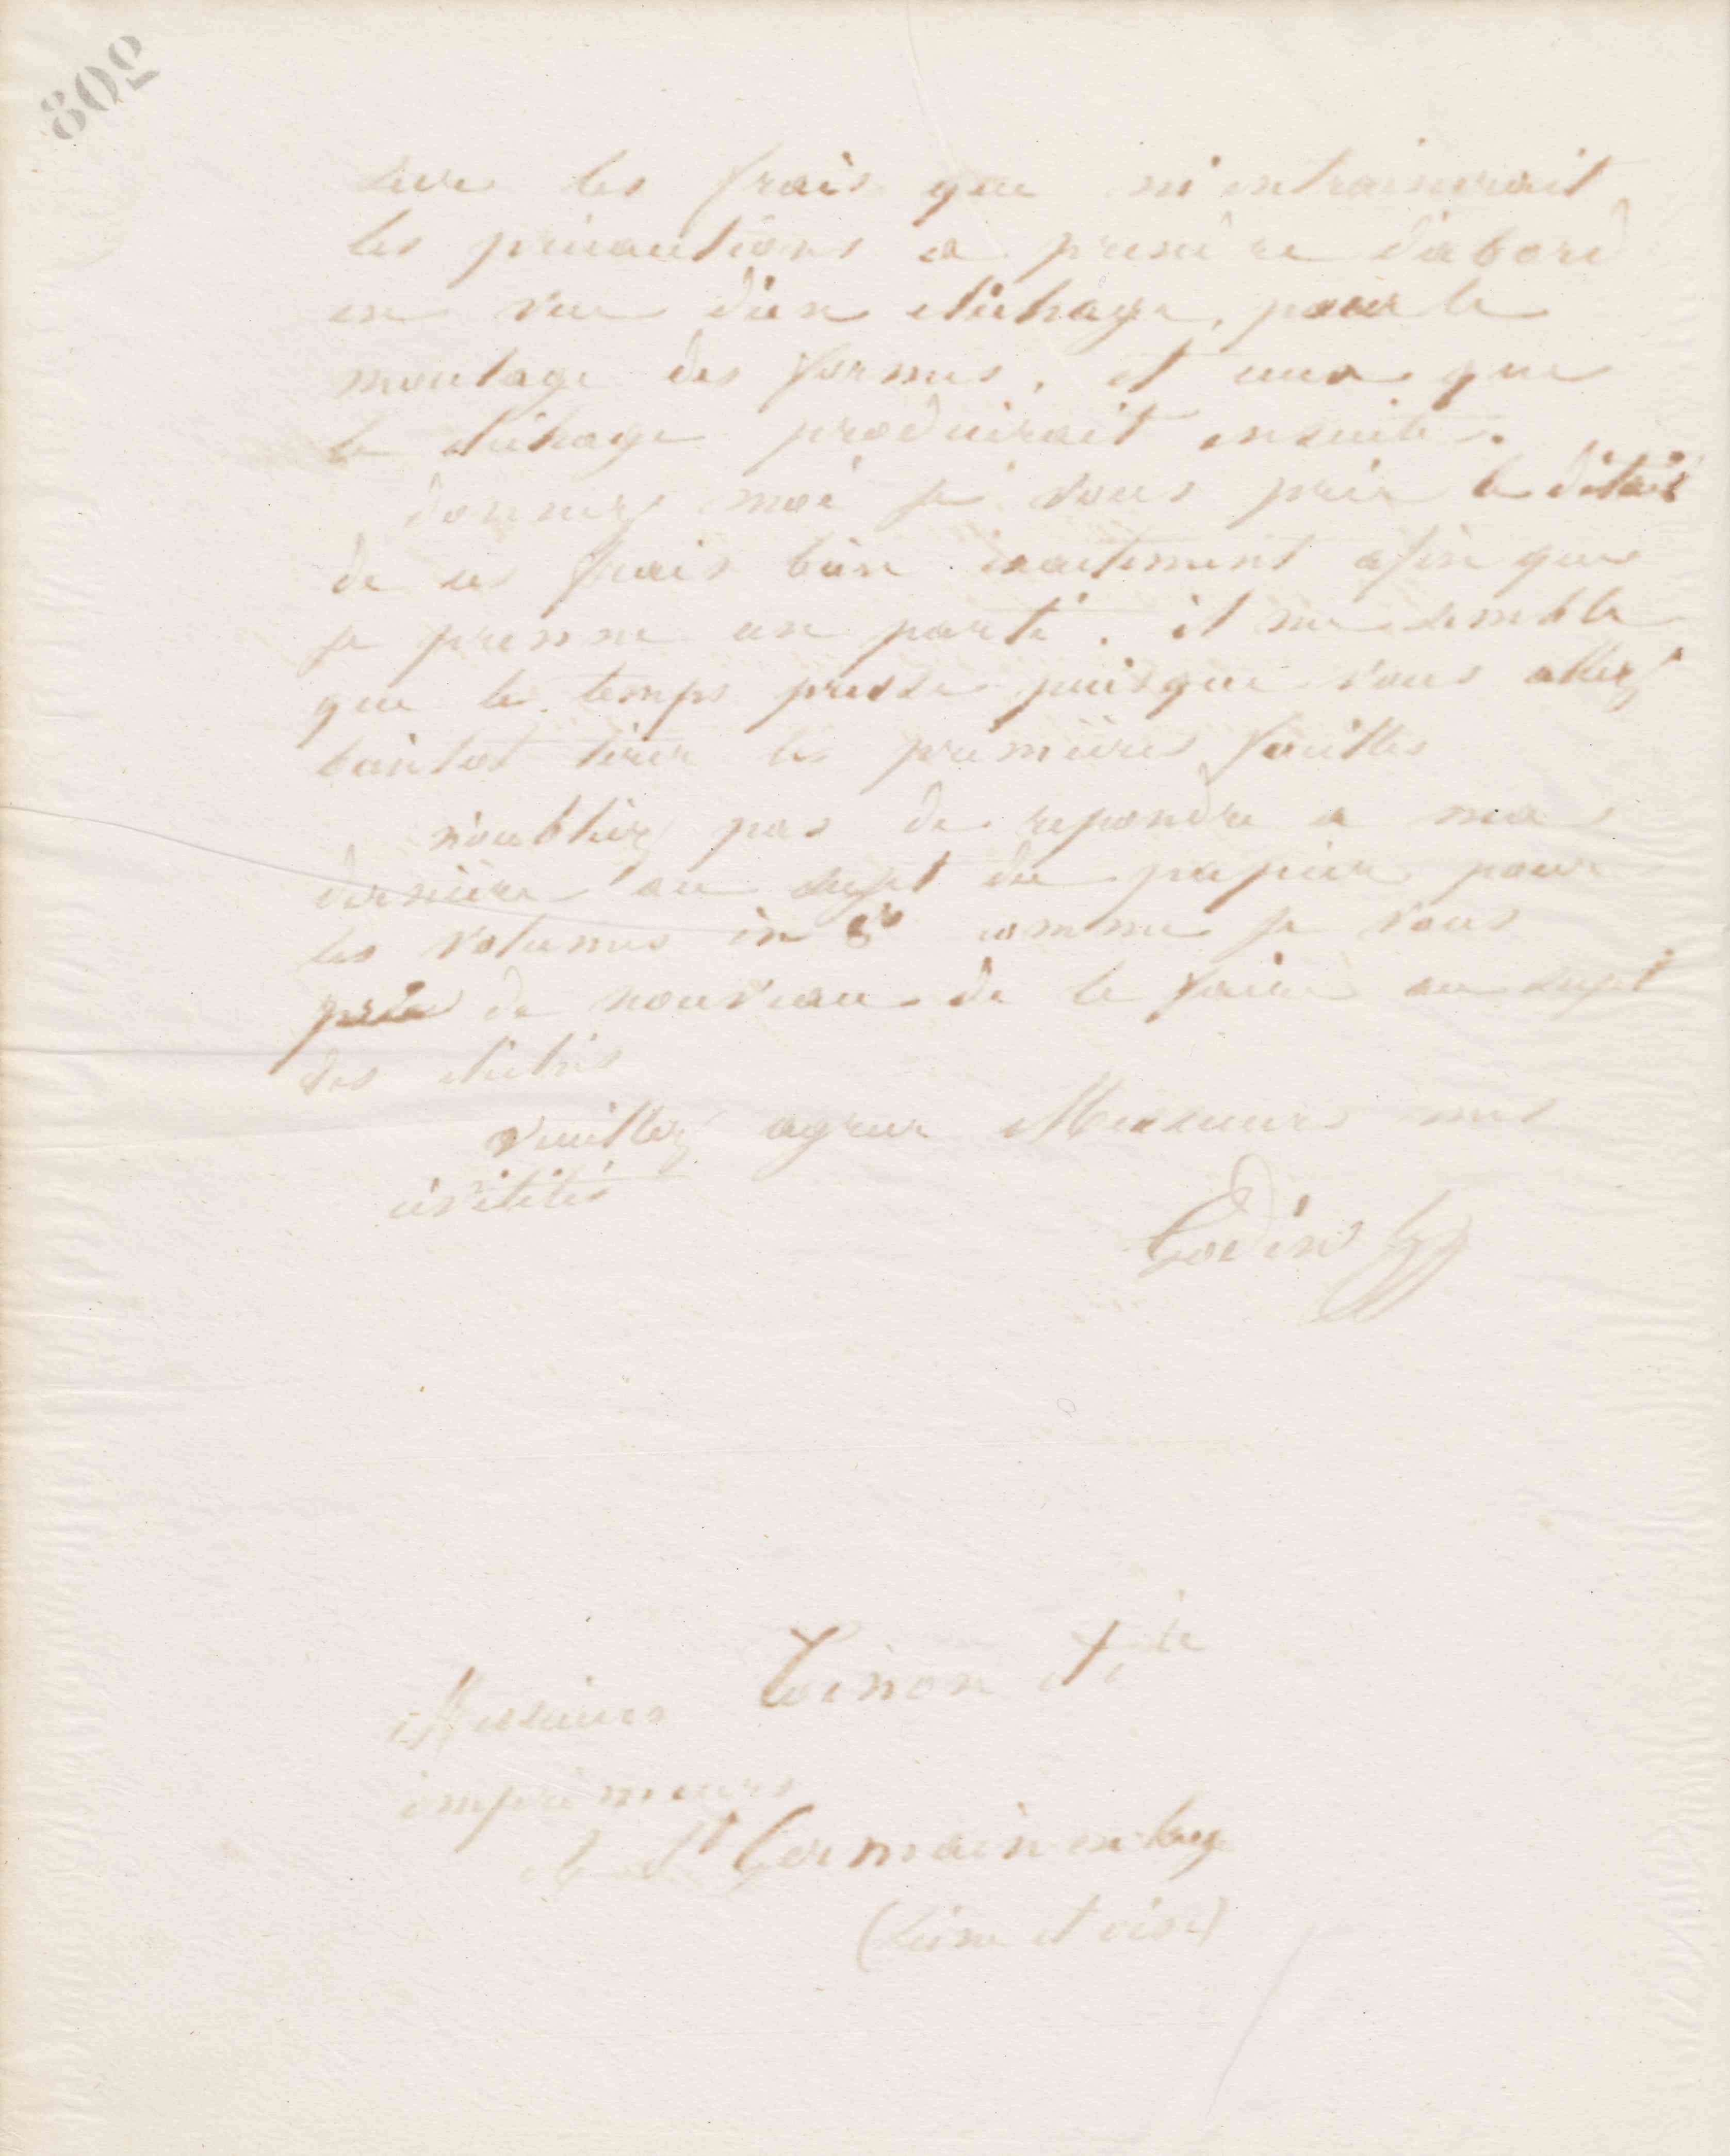 208
sur les frais que m'entrainerait
les précautions a prendre d'abord
en vue d'un clichage, pour le
montage des formes, et ceux que
le clichage produirait ensuite.
donnez moi je vous prie le détail
de ces frais bien exactement afin que
je prenne un parti. il me semble
que le temps presse puisque vous allez
bientot tirer les premières feuilles
n'oubliez pas de repondre a ma
dernière au sujet du papier pour
les volumes in 8° comme je vous
prie de nouveau de le faire au sujet
des clichés
veuillez agréer Messieurs mes
civilités
Godin
Messieurs Toinon et Cie
imprimeurs
à St Germain en laye
(Seine et oise)